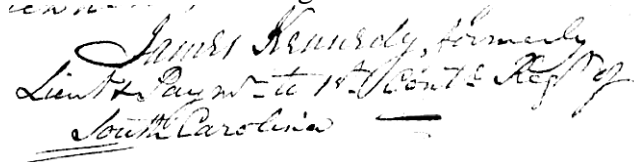 James Kennedy, formerly
Lieut & Paymr to 1st Contl Regt of
South Carolina